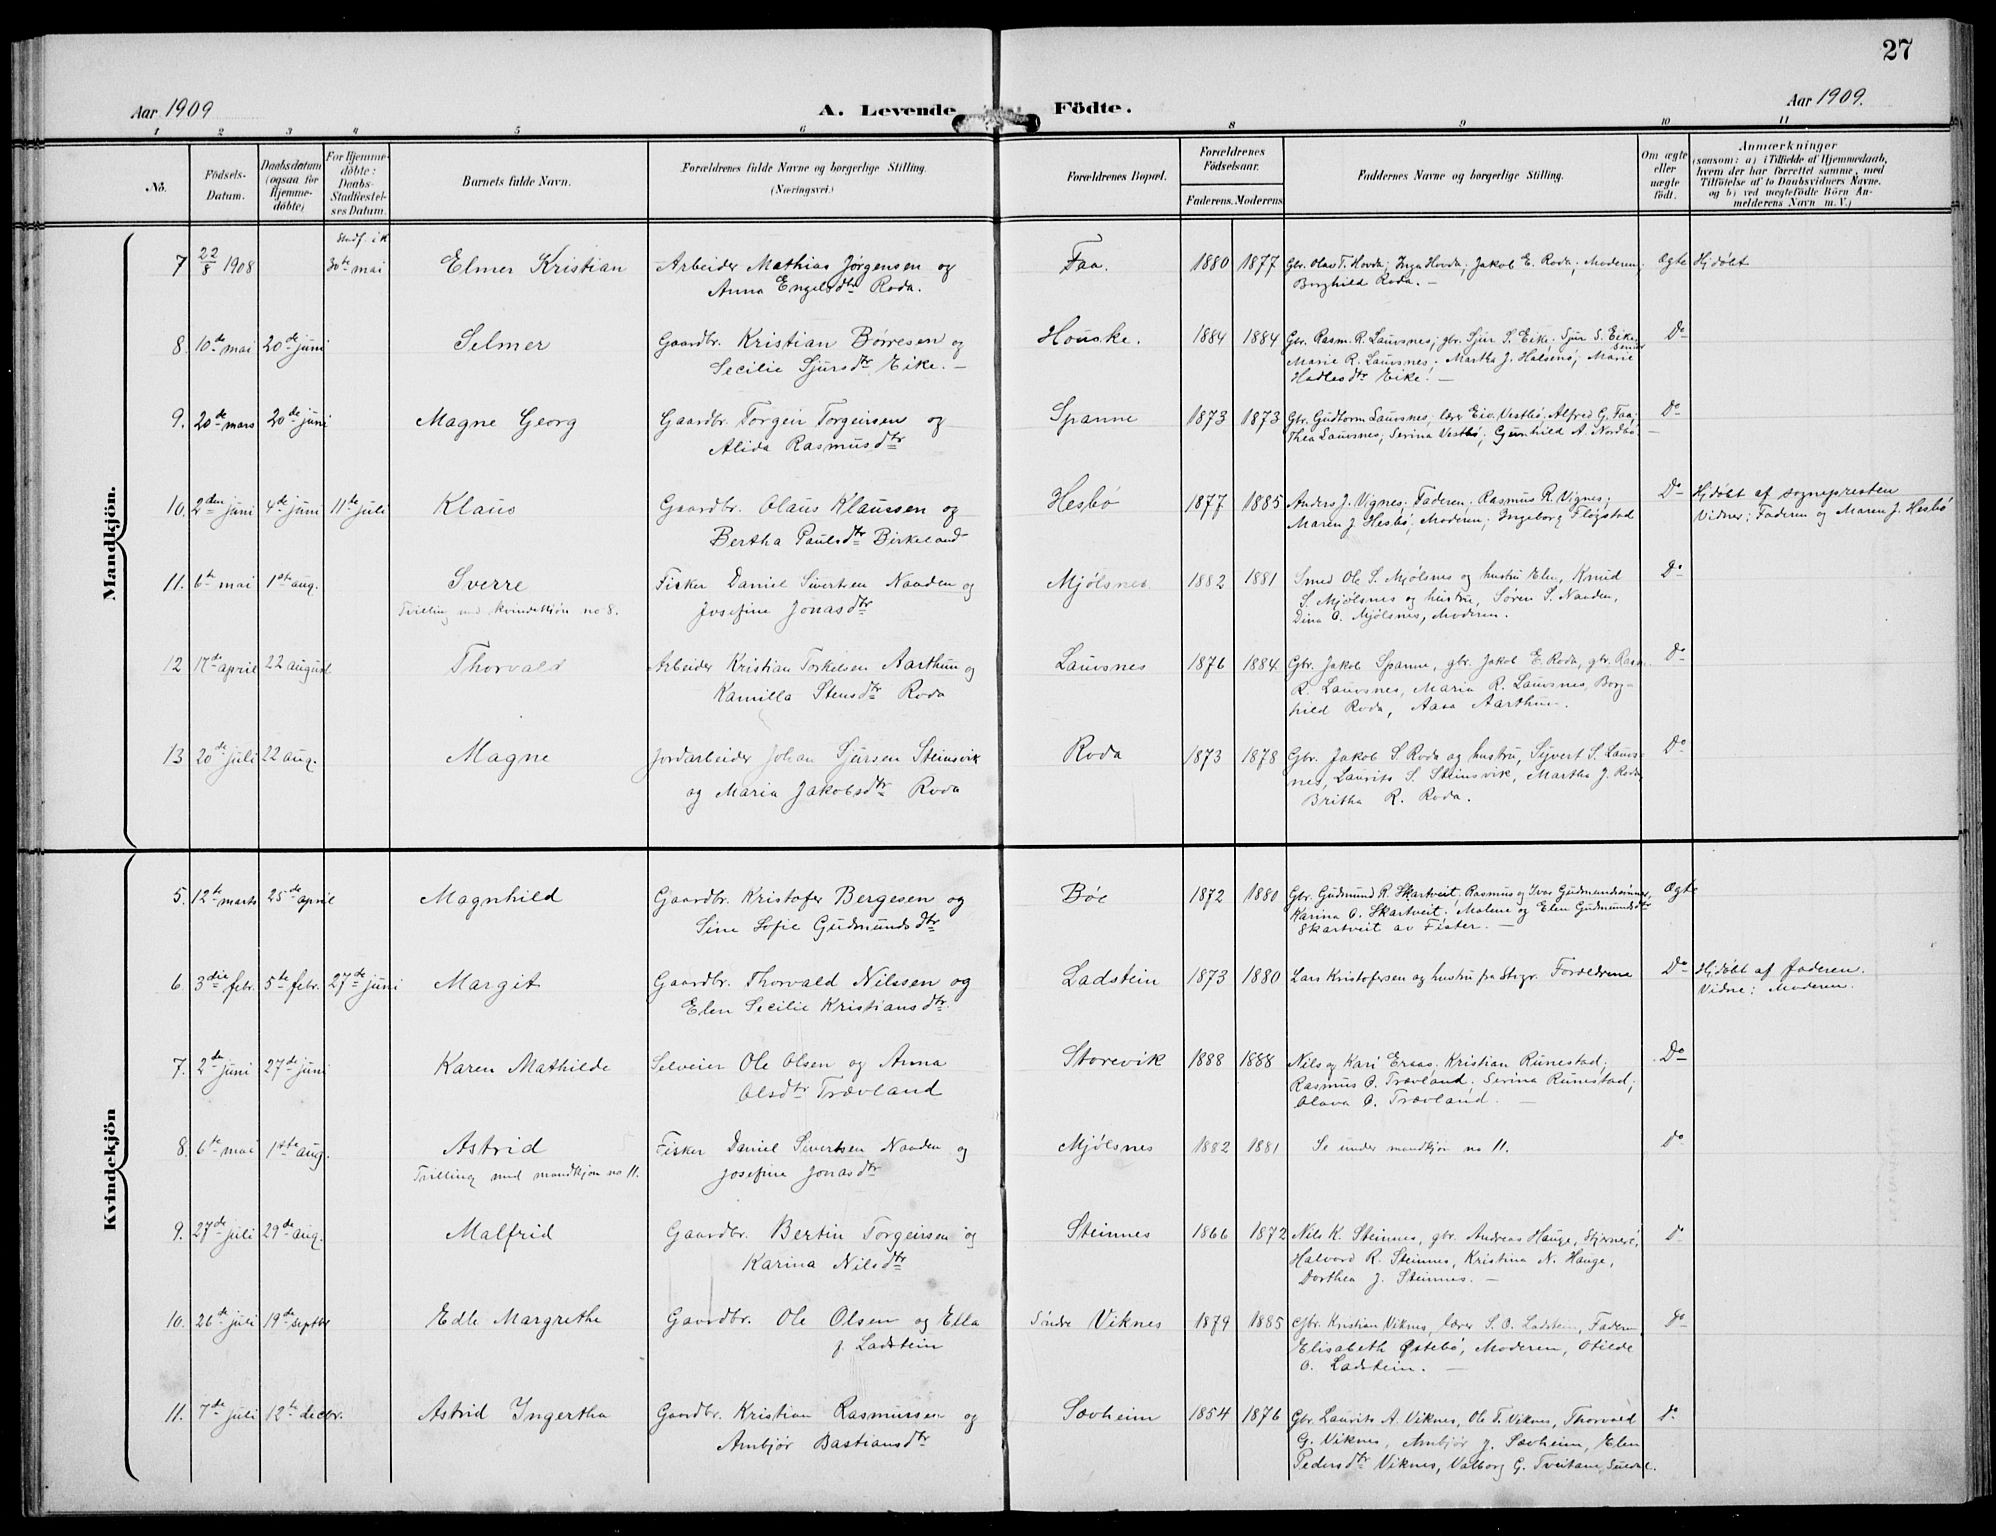 27
Aar 1909
A. Levende Födte.
Aar 1909.
1 2 3 4 5 6 8 9 10 11
No.
Födsels-Datum.
Daabsdatum (ogsaa for Hjemme-döbte)
For Hjemme-döbte: Daabs-Stadfæstel-ses Datum.
Barnets fulde Navn.
Forældrenes fulde Navne og borgerlige Stilling. (Næringsvei.)
Forældrenes Bopæl.
Forældrenes Födselsaar.
Faderens. Moderens
Faddernes Navne og borgerlige Stilling.
Om ægte eller uægte födt.
Anmærkninger
(saasom: a) i Tilfælde af Hjemmedaab, hvem der har forrettet samme, med Tilföielse af to Daabsvidners Navne, og b) ved uægtefödte Börn An-melderens Navn m. V.)
Mandkjön.
Stadf. i k.
7 22/8 1908 30te mai Elmer Kristian Arbeider Mathias Jørgensen og Faa. 1880 1877 Gbr. Olav T. Hovda; Inga Hovda; Jakob E. Roda; Moderen; Ægte Hjdøbt
Anna Engelsdtr Roda. Borghild Roda. —
8. 10de mai 20de juni Selmer Gaardbr. Kristian Børresen og Houske. 1884 1884 Gbr. Rasm. R. Lauvsnes; gbr. Sjur S. Eike; Sjur S. Eike senior Do
Secilie Sjursdtr Eike. — Marie R. Lauvsnes; Martha J. Halsenø; Marie
Hadlesdtr Eike. —
9. 20de mars 20de juni Magne Georg Gaardbr. Torgeir Torgeirsen og Spanne 1873 1873 Gbr. Gudtorm Lauvsnes; lærer Eiv. Vestbø, Alfred G. Faa; Do
Alida Rasmusdtr Thea Lauvsnes; Serina Vestbø; Gunhild A. Nordbø. —
10. 2den juni 4de juni 11te juli Klaus Gaardbr. Olaus Klaussen og Hesbø 1877 1885 Anders J. Vignes; Faderen; Rasmus R. Vignes; Do Hjdøbt af sognepresten
Bertha Paulsdtr Birkeland Maren J. Hesbø; Moderen; Ingeborg Fløgstad Vidner: Faderen og Maren J. Hesbø
11. 6te mai 1ste aug. Sverre Fisker Daniel Sivertsen Naaden og Mjølsnes 1882 1881 Smed Ole S. Mjølsnes og hustru Elen, Knud Do
Tvilling med kvindekjøn no 8. Josefine Jonasdtr S. Mjølsnes og hustru, Søren S. Naaden,
Dina O. Mjølsnes, Moderen.
12 17de april 22 august Thorvald Arbeider Kristian Torkelsen Aarthun og Lauvsnes 1876 1884. Gbr. Jakob Spanne, gbr. Jakob E. Roda, gbr. Rasm. Do
Kamilla Stensdtr Roda R. Lauvsnes, Maria R. Lauvsnes, Borg-
hild Roda, Aasa Aarthun.
13 20de juli 22 aug. Magne Jordarbeider Johan Sjursen Steinsvik Roda 1873 1878 Gbr. Jakob S. Roda og hustru, Sijvert S. Lauvs- Do
og Maria Jakobsdtr Roda nes, Laurits S. Steinsvik, Martha J. Roda
Britha R. Roda.
Kvindekjön
5. 12te marts 25de april Magnhild Gaardbr. Kristofer Bergesen og Bøe 1872 1880 Gbr. Gudmund R. Skartveit; Rasmus og Ivar Gudmundsønner, Ægte
Sine Sofie Gudmundsdtr Karina O. Skartveit; Malene og Elen Gudmundsdtr
Skartveit av Fister. —
6. 3die febr. 5te febr. 27de juni Margit Gaardbr. Thorvald Nilssen og Ladstein 1873 1880 Lars Kristofersen og hustru fra Stvgr. Forældrene Do Hjdøbt af Faderen.
Elen Secilie Kristiansdtr. Vidne: Moderen.
7. 2den juni 27de juni Karen Mathilde Selveier Ole Olsen og Anna Storevik 1888 1888 Nils og Kari Eraas; Kristian Runestad; Do
Olsdtr Trævland Rasmus O. Trævland; Serina Runestad;
Olava O. Trævland. —
8. 6te mai 1ste aug. Astrid Fisker Daniel Sivertsen Naaden og Mjølsnes 1882 1881 Se under mandkjøn no 11. Do
Tvilling med mandkjøn no 11. Josefine Jonasdtr
9. 27de juli 29de aug. Malfrid Gaardbr. Bertin Torgeirsen og Steinnes 1866 1872 Nils K. Steinnes, gbr. Andreas Hauge, Stjernerø, Do
Karina Nilsdtr Halvard R. Steinnes, Kristina N. Hauge,
Dorthea J. Steinnes. —
10. 26de juli 19de septbr Edle Margrethe Gaardbr. Ole Olsen og Etla Søndre Viknes 1879 1885 Gbr. Kristian Viknes, lærer S. O. Ladstein, Faderen, Do
J. Ladstein Elisabeth Østebø, Moderen, Otilde
O. Ladstein. —
11. 7de juli 12te decbr. Astrid Ingertha Gaardbr. Kristian Rasmussen og Sævheim 1854 1876 Gbr. Laurits A. Viknes, Ole T. Viknes, Thorvald Do
Ambjør Bastiansdtr G. Viknes, Ambjør J. Sævheim, Elen
Pedersdtr Viknes, Valborg G. Tveitane, Suldal.